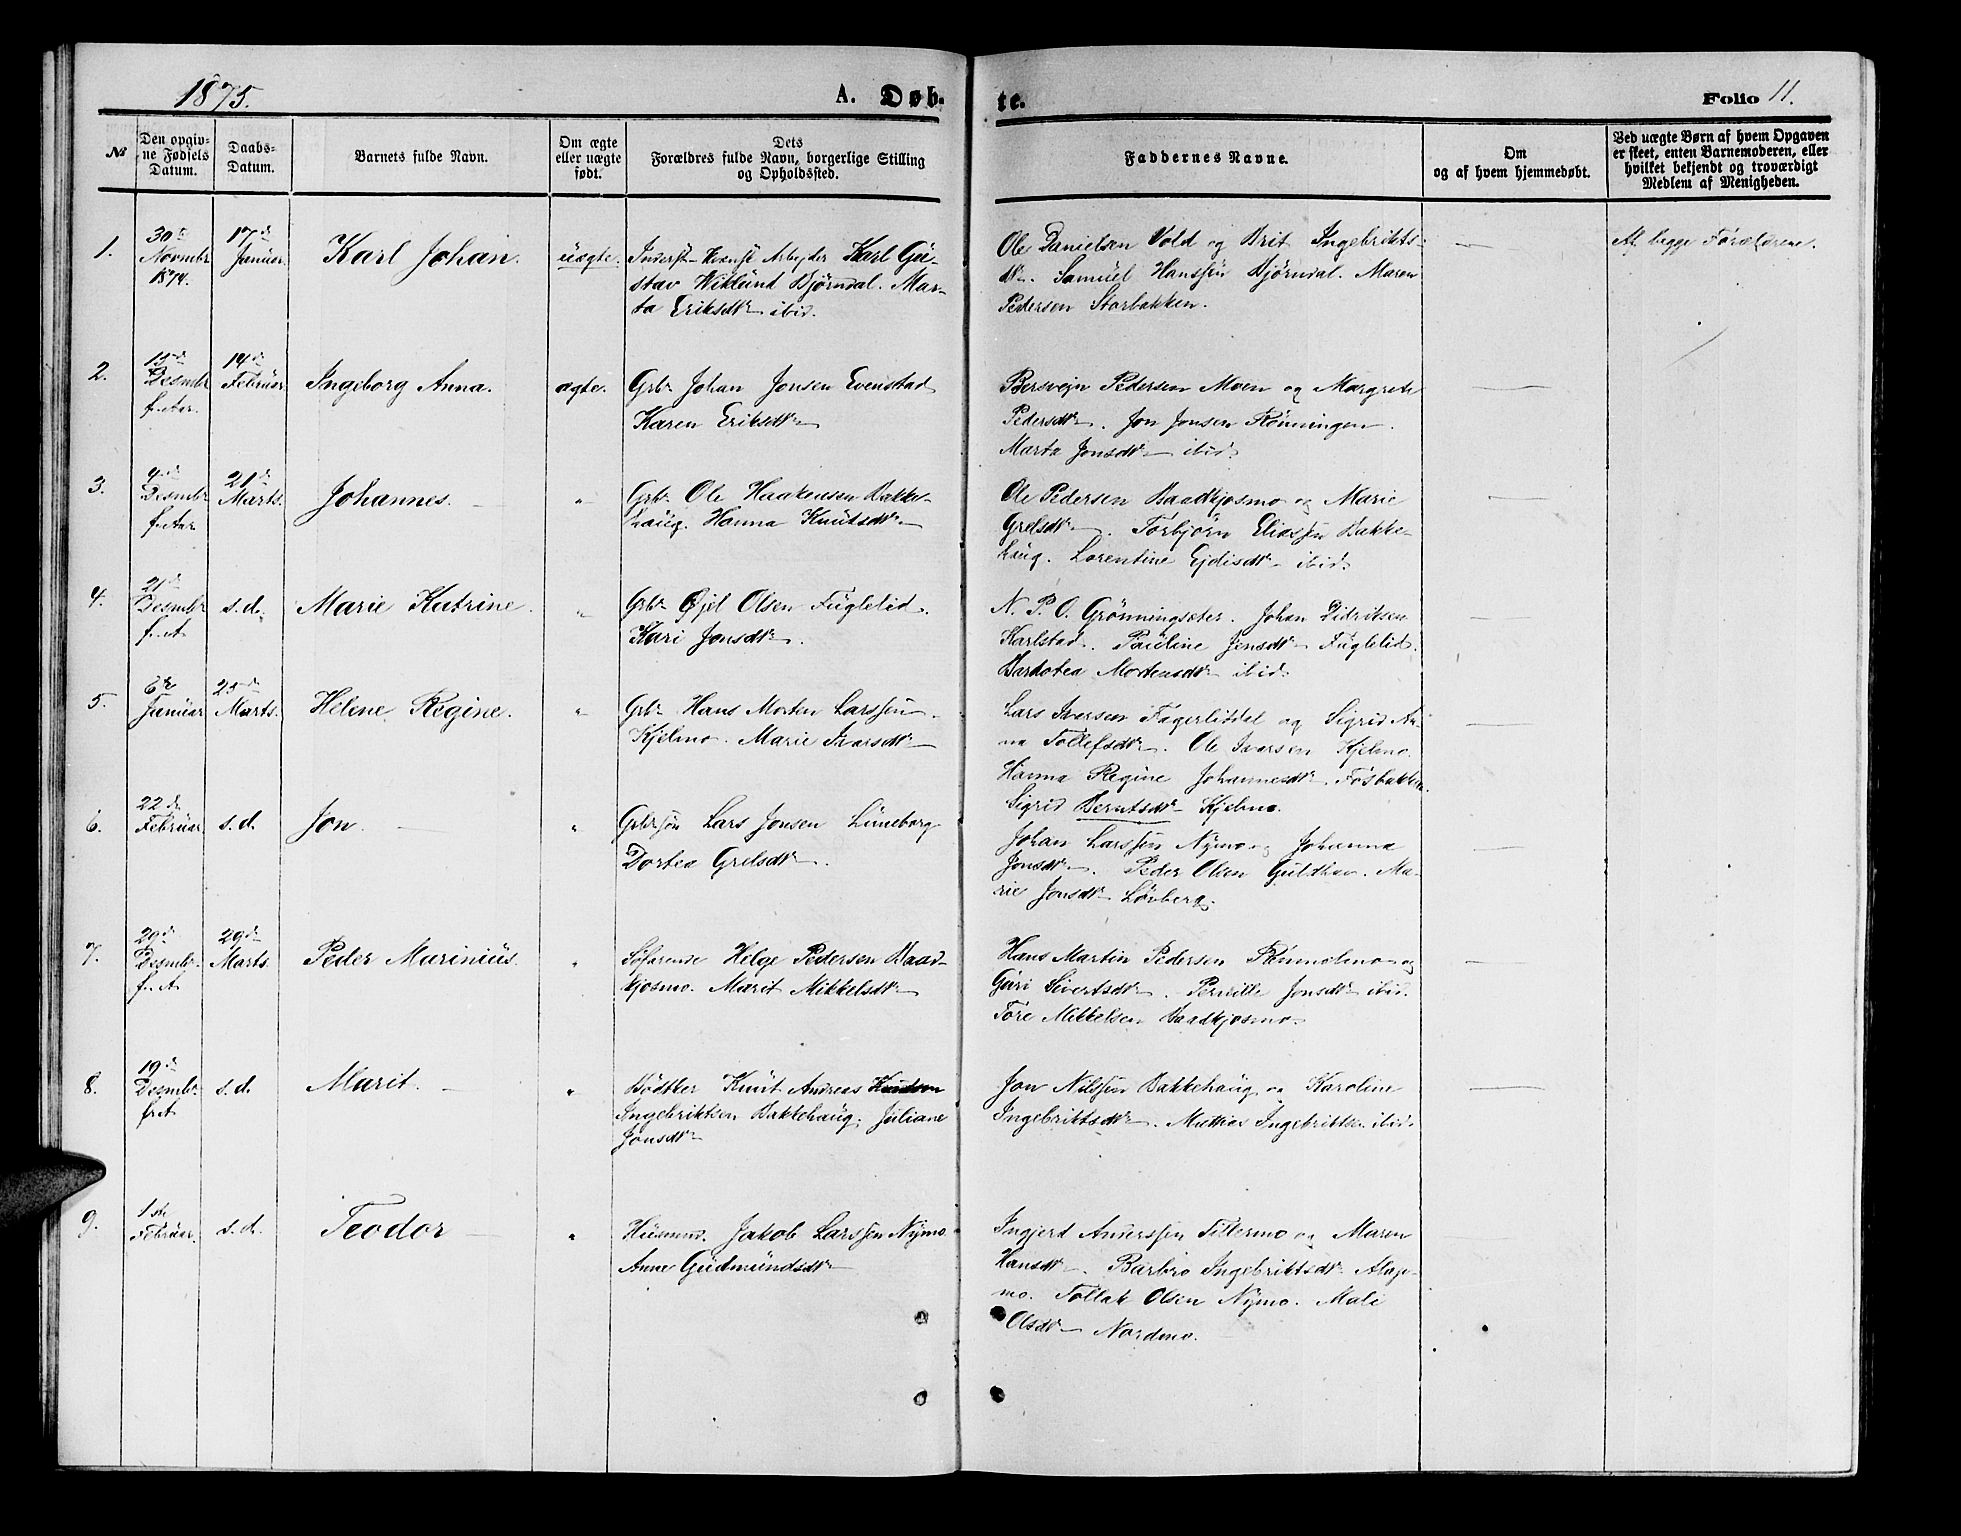 1875.
A. Døb-
te.
Folio 11.
№
Den opgiv-
ne Fødsels
Datum.
Daabs-
Datum.
Barnets fulde Navn.
Om ægte
eller uægte
født.
Dets
Forældres fulde Navn, borgerlige Stilling
og Opholdssted.
Faddernes Navne.
Om
og af hvem hjemmedøbt.
Ved uægte Børn af hvem Opgaven
er skeet, enten Barnemoderen, eller
hvilket bekjendt og troværdigt
Medlem af Menigheden.
1.
30te
Novmbr
1874.
17de
Januar.
Karl Johan.
uægte.
Arbejder Karl Gu-
stav Wiklund Bjørndal. Mar-
ta Eriksdtr ibid.
Ole Danielsen Vold og Brit Ingebrikts-
dtr. Samuel Hanssen Bjørndal. Maren
Pedersen Storbakken.
—
Af begge Forældrene.
2.
13de
Desmbr
f. Aar.
14de
Februar.
Ingeborg Anna.
ægte.
Grbr Johan Jonsen Evenstad
Karen Eriksdtr
Bersvejn Pedersen Moen og Margrete
Pedersdtr. Jon Jonsen Rønningen.
Marta Jonsdtr ibid.
—
3.
4de
Desmbr
f. Aar
21de
Marts.
Johannes.
"
Grbr Ole Haakensen Bakke-
haug. Hanna Knutsdtr
Ole Pedersen Baadkjosmo og Marie
Grelsdtr. Torbjørn Eliassen Bakke-
haug. Lorentine Ejdisdtr ibid.
—
4.
21de
Desmbr
f. A
s. d.
Marie Katrine.
"
Grbr Øjel Olsen Fuglelid.
Kari Jonsdtr.
N. P. O. Grønningsæter. Johan Didriksen
Karlstad. Pauline Jensdtr Fuglelid.
Bardotea Mortensdtr ibid.
—
5.
6te
Januar
25de
Marts.
Heline Regine.
"
Grbr Hans Morten Larssen
Kjelmo. Marie Ivarsdtr
Lars Ivarsen Fagerliddal og Sigrid An-
na Tollefsdtr. Ole Ivarsen Kjelmo.
Hanna Regine Johannesdtr Fosbakken.
Sigrid Berntsdtr Kjelmo.
—
6.
22de
Februar.
s. d.
Jon.
"
Grbrsøn Lars Jonsen Luneborg
Dortea Grelsdtr.
Johan Larssen Nymo og Johanna
Jonsdtr. Peder Olsen Guldhav. Ma-
rie Jonsdtr Løvberg.
—
7.
29de
Desmbr.
f. A
29de
Marts
Peder Marinius.
"
Søfarende Helge Pedersen Baad-
kjosmo. Marit Mikkelsdtr
Hans Martin Pedersen Rømmelmo og
Guri Sivertsdtr. Pernille Jonsdtr ibid.
Tore Mikkelsen Baadkjosmo.
—
8.
19de
Desmbr.
f. A
s. d.
Marit.
"
Bødtker Knut Andreas
Ingebriktsen Bakkehaug. Juliane
Jonsdtr
Jon Nilssen Bakkehaug og Karoline
Ingebriktsdtr. Mattias Ingebriktsen ibid.
—
9.
1ste
Februar.
s. d.
Teodor
"
Husmnd. Jakob Larssen Nymo.
Anne Gudmundsdtr
Ingjerd Anderssen Tillermo og Maren
Hansdtr. Barbro Ingebriktsdtr Alap-
mo. Tollak Olsen Nymo. Mali
Olsdtr Nordmo.